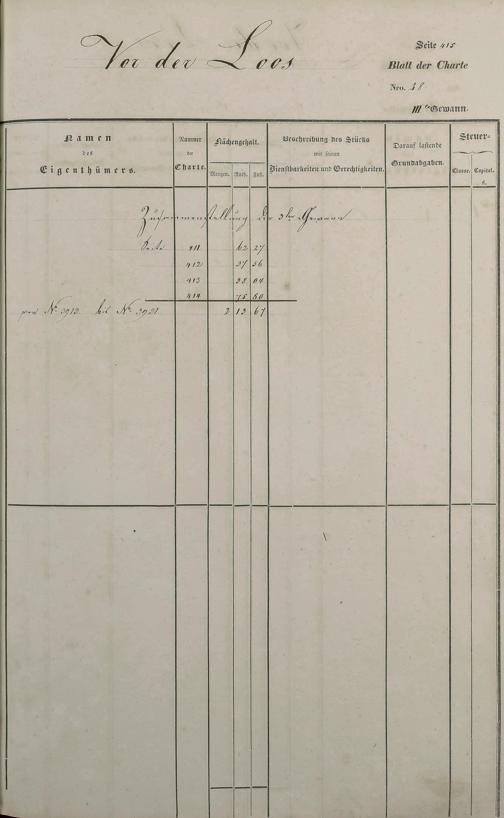 Vor der Loos
Seite 415
Blatt der Charte
Nro. 48
III te Gewann.
Namen
des
Eigenthümers.
Nummer
der
Charte.
Flächengehalt.
Morgen. Ruth. Fuß.
Beschreibung des Stücks
mit seinen
Dienstbarkeiten und Gerechtigkeiten.
Darauf lastende
Grundabgaben.
Steuer-
Classe. Capital.
fl.
Zusammenstellung der 3ten Gewann
Seite 411 62 27
412 37 56
413 38 04
414 75 80
von No 3912 bis No 3921 2 13 67